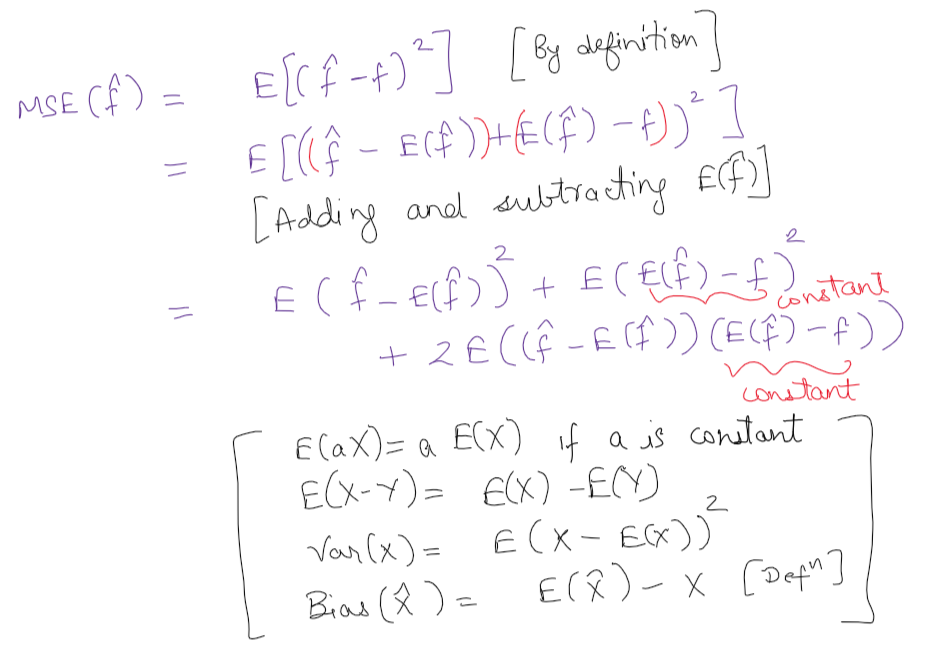 MSE(f̂) = E[(f̂ - f)²] [By definition]
= E[((f̂ - E(f̂))+(E(f̂) - f))²]
[Adding and subtracting E(f̂)]
= E(f̂ - E(f̂))² + E(E(f̂) - f)²
constant
+ 2E((f̂ - E(f̂))(E(f̂) - f))
constant
E(aX)= a E(X) if a is constant
E(X-Y)= E(X) - E(Y)
Var(X)= E(X - E(X))²
Bias(X̂) = E(X̂) - X [Defⁿ]